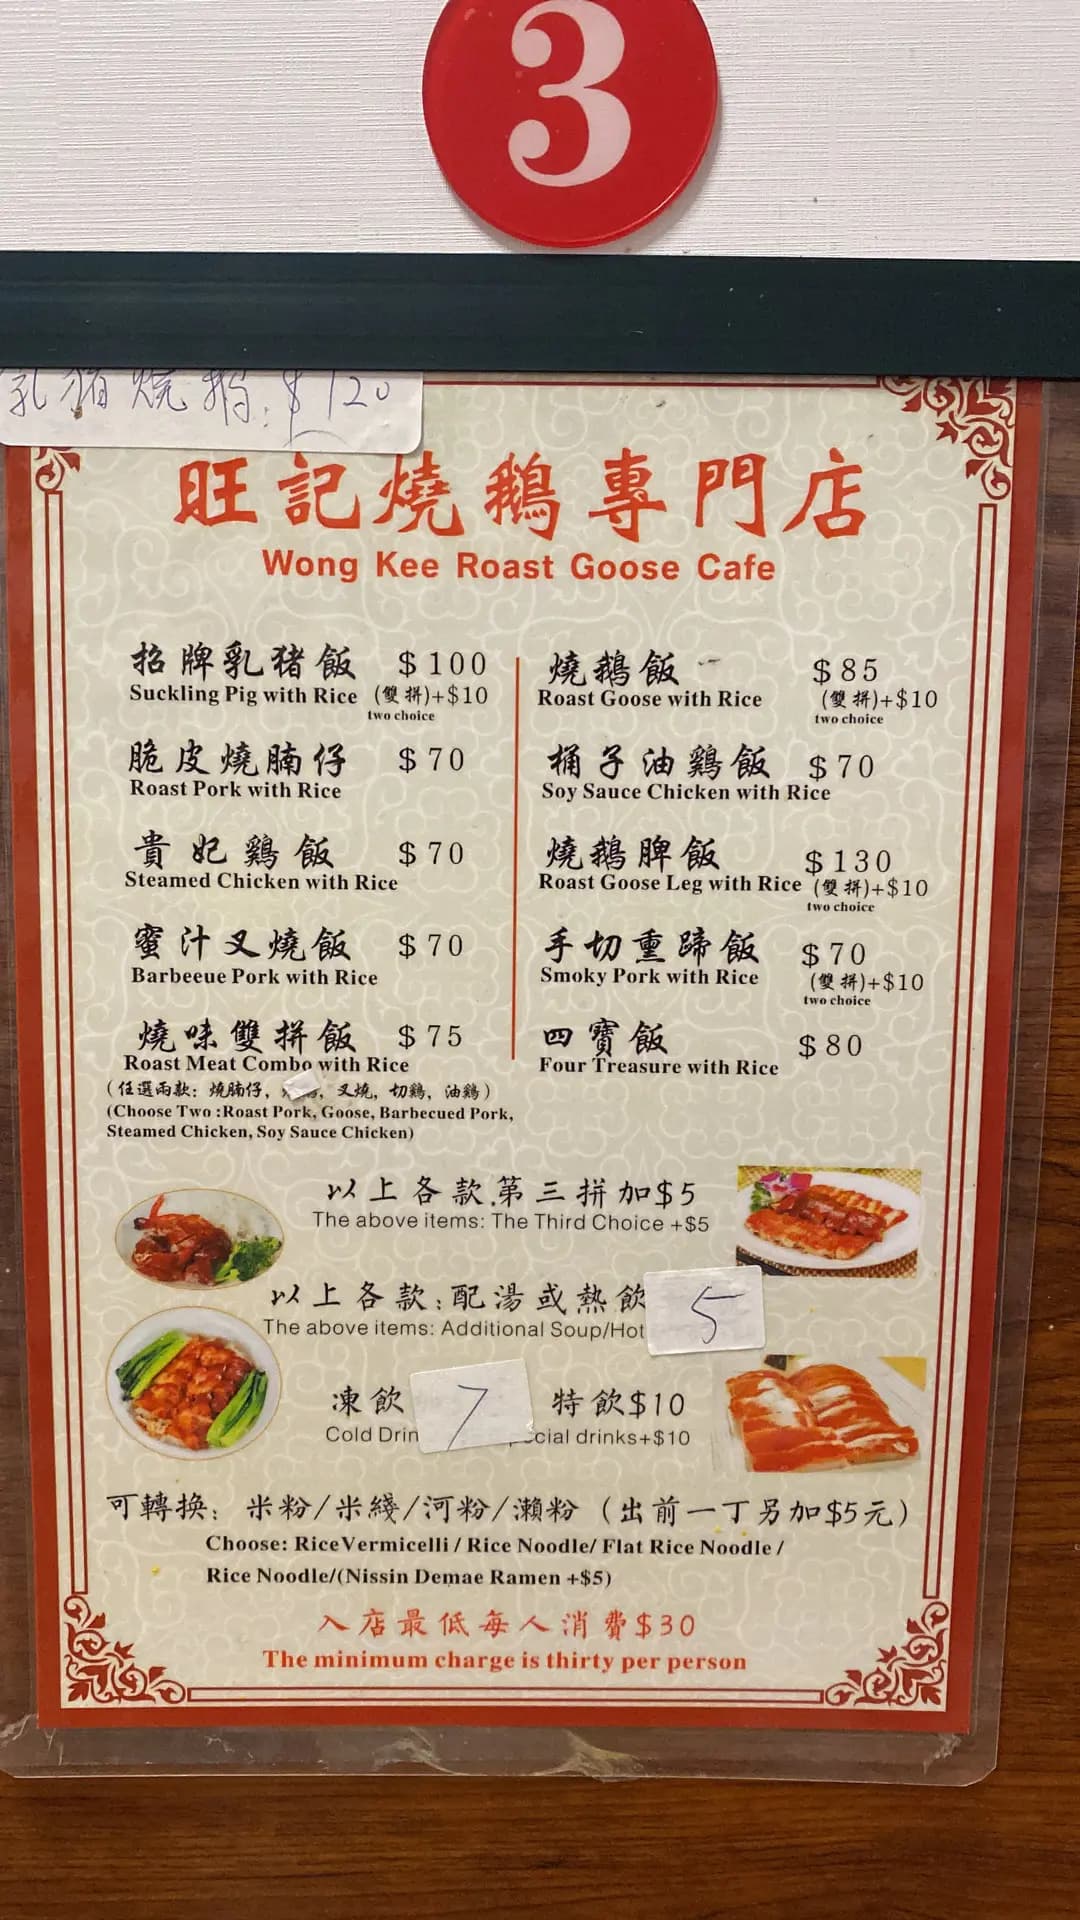 3
乳猪燒鵝:$120
旺記燒鵝專門店
Wong Kee Roast Goose Cafe
招牌乳猪飯 $100
Suckling Pig with Rice (雙拼)+$10
two choice
脆皮燒腩仔 $70
Roast Pork with Rice
貴妃鷄飯 $70
Steamed Chicken with Rice
蜜汁叉燒飯 $70
Barbeeue Pork with Rice
燒味雙拼飯 $75
Roast Meat Combo with Rice
(任選兩款: 燒腩仔, 叉燒, 切鷄, 油鷄)
(Choose Two :Roast Pork, Goose, Barbecued Pork,
Steamed Chicken, Soy Sauce Chicken)
燒鵝飯 $85
Roast Goose with Rice (雙拼)+$10
two choice
桶子油鷄飯 $70
Soy Sauce Chicken with Rice
燒鵝脾飯 $130
Roast Goose Leg with Rice (雙拼)+$10
two choice
手切熏蹄飯 $70
Smoky Pork with Rice (雙拼)+$10
two choice
四寶飯 $80
Four Treasure with Rice
以上各款.第三拼加$5
The above items: The Third Choice +$5
以上各款:配湯或熱飲 5
The above items: Additional Soup/Hot
凍飲 7 特飲$10
Cold Drin cial drinks+$10
可轉换: 米粉/米綫/河粉/瀨粉 (出前一丁另加$5元)
Choose: Rice Vermicelli / Rice Noodle/ Flat Rice Noodle /
Rice Noodle/(Nissin Demae Ramen +$5)
入店最低每人消費$30
The minimum charge is thirty per person